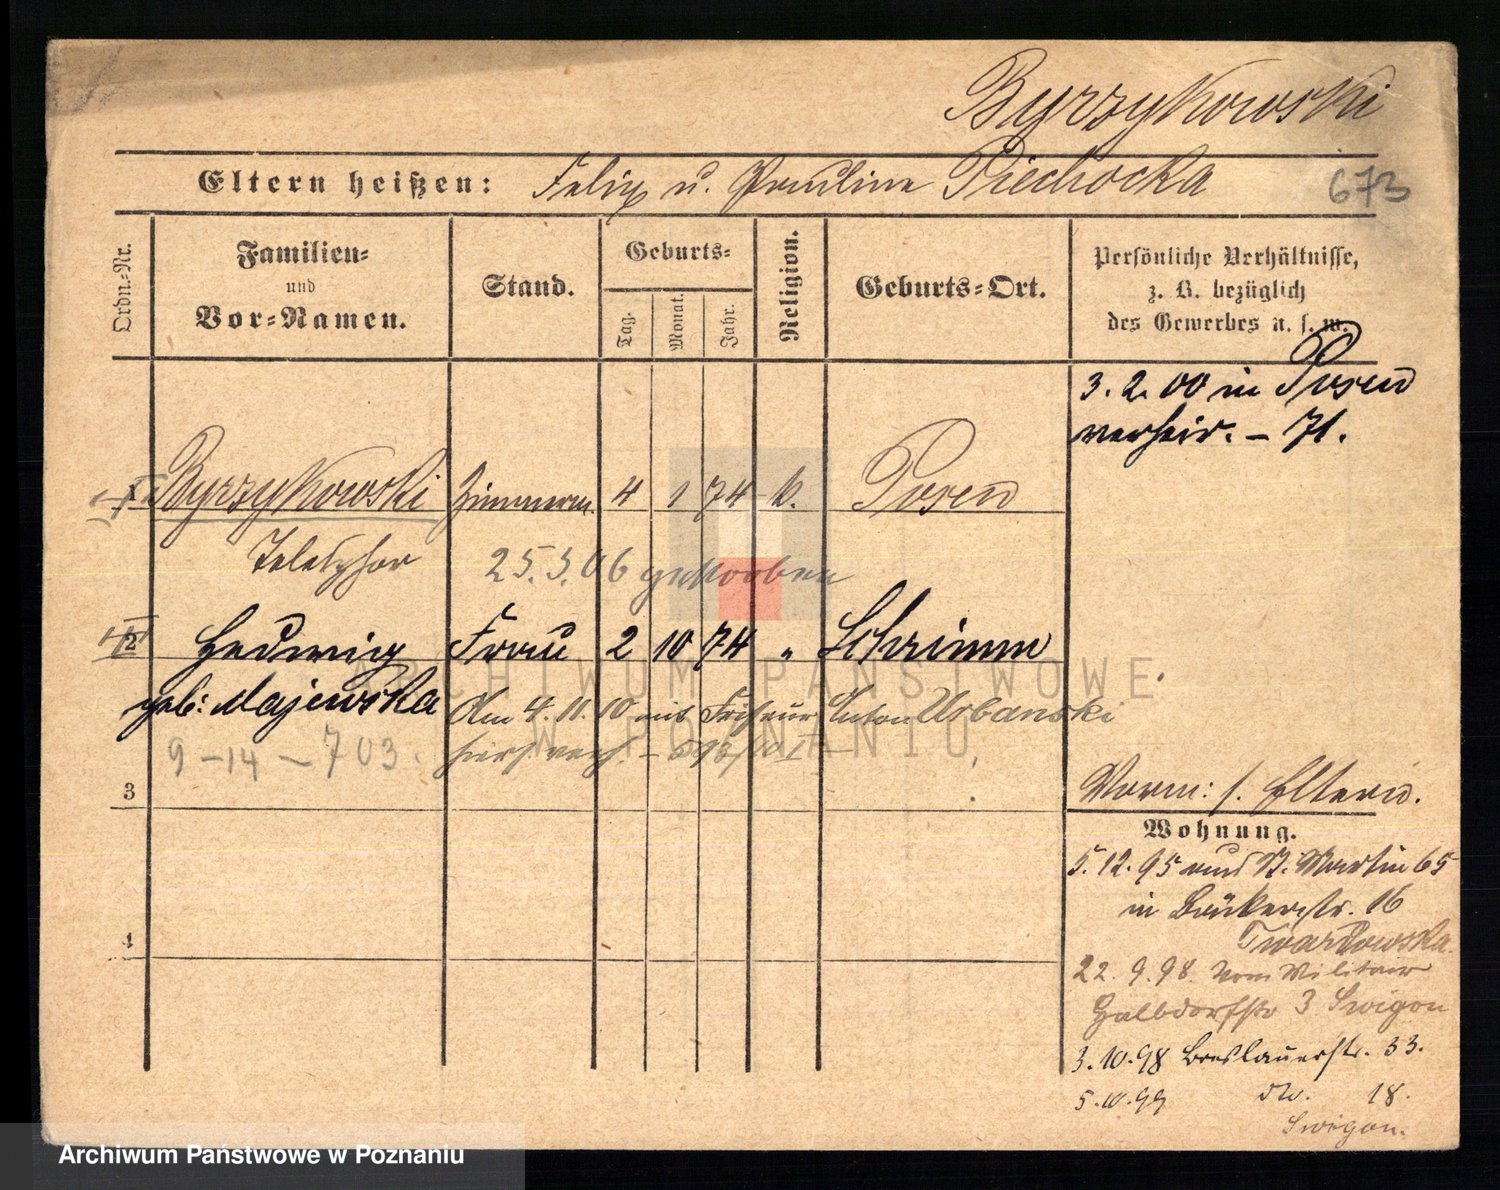 Byrzykowski
Eltern heißen: Felix u. Pauline Piechocka 673
Ordn.=Nr.
Familien=
und
Vor=Namen.
Stand.
Geburts=
Tag.
Monat.
Jahr.
Religion.
Geburts=Ort.
Persönliche Verhältnisse,
z. B. bezüglich
des Gewerbes u. s. w.
3. 2. 00 in Posen
verheir. - 71.
1 Byrzykowski Zimmerm. 4 1 74 k. Posen
Telesphor 25. 3. 06 gestorben
2 Hedwig Frau 2 10 74 " Schrimm
geb: Majewska Am 4. 11. 10 mit Friseur Anton Urbanski
9-14-703. hier verh.
3
4
Vorm: s. Eltern.
Wohnung.
5. 12. 95 aus St. Martin 65
in Bäckerstr. 16
Twardowska
22. 9. 98. vom Militair
Halbdorfstr 3 Swigon
3. 10. 98 Breslauerstr. 33.
5. 10. 99 do. 18.
Swigon.
ARCHIWUM PAŃSTWOWE
W POZNANIU
Archiwum Państwowe w Poznaniu